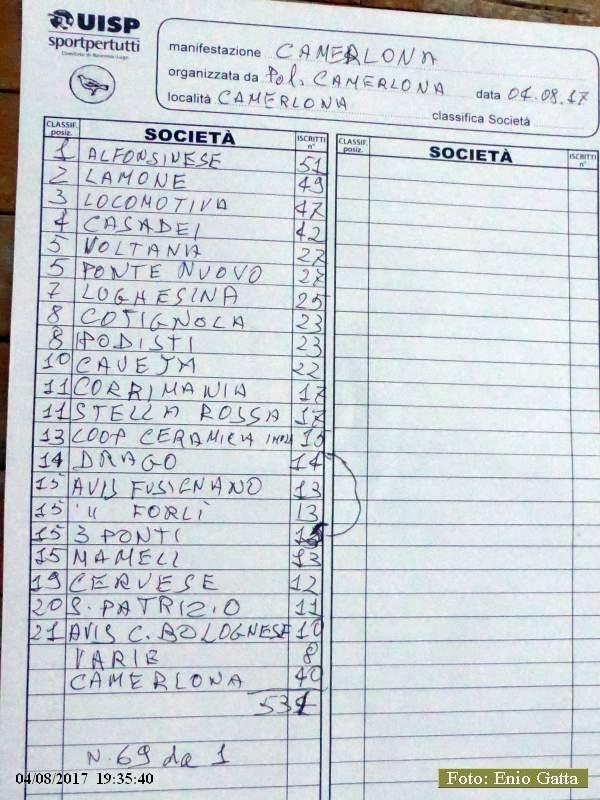 UISP
sportpertutti
manifestazione CAMERLONA
organizzata da Pol. CAMERLONA data 04.08.17
località CAMERLONA classifica Società
CLASSIF. posiz. SOCIETÀ ISCRITTI n° CLASSIF. posiz. SOCIETÀ ISCRITTI n°
1 ALFONSINESE 51
2 LAMONE 49
3 LOCOMOTIVA 47
4 CASADEI 42
5 VOLTANA 27
5 PONTE NUOVO 27
7 LUGHESINA 25
8 COTIGNOLA 23
8 PODISTI 23
10 CAVEJA 22
11 CORRIMANIA 17
11 STELLA ROSSA 17
13 COOP CERAMICA IMOLA
14 DRAGO 14
15 AVIS FUSIGNANO 13
15 " FORLÌ 13
15 3 PONTI
15 MAMELI 13
19 CERVESE 12
20 S. PATRIZIO 11
21 AVIS C. BOLOGNESE 10
VARIE 8
CAMERLONA 40
534
N. 69 da 1
04/08/2017 19:35:40
Foto: Enio Gatta